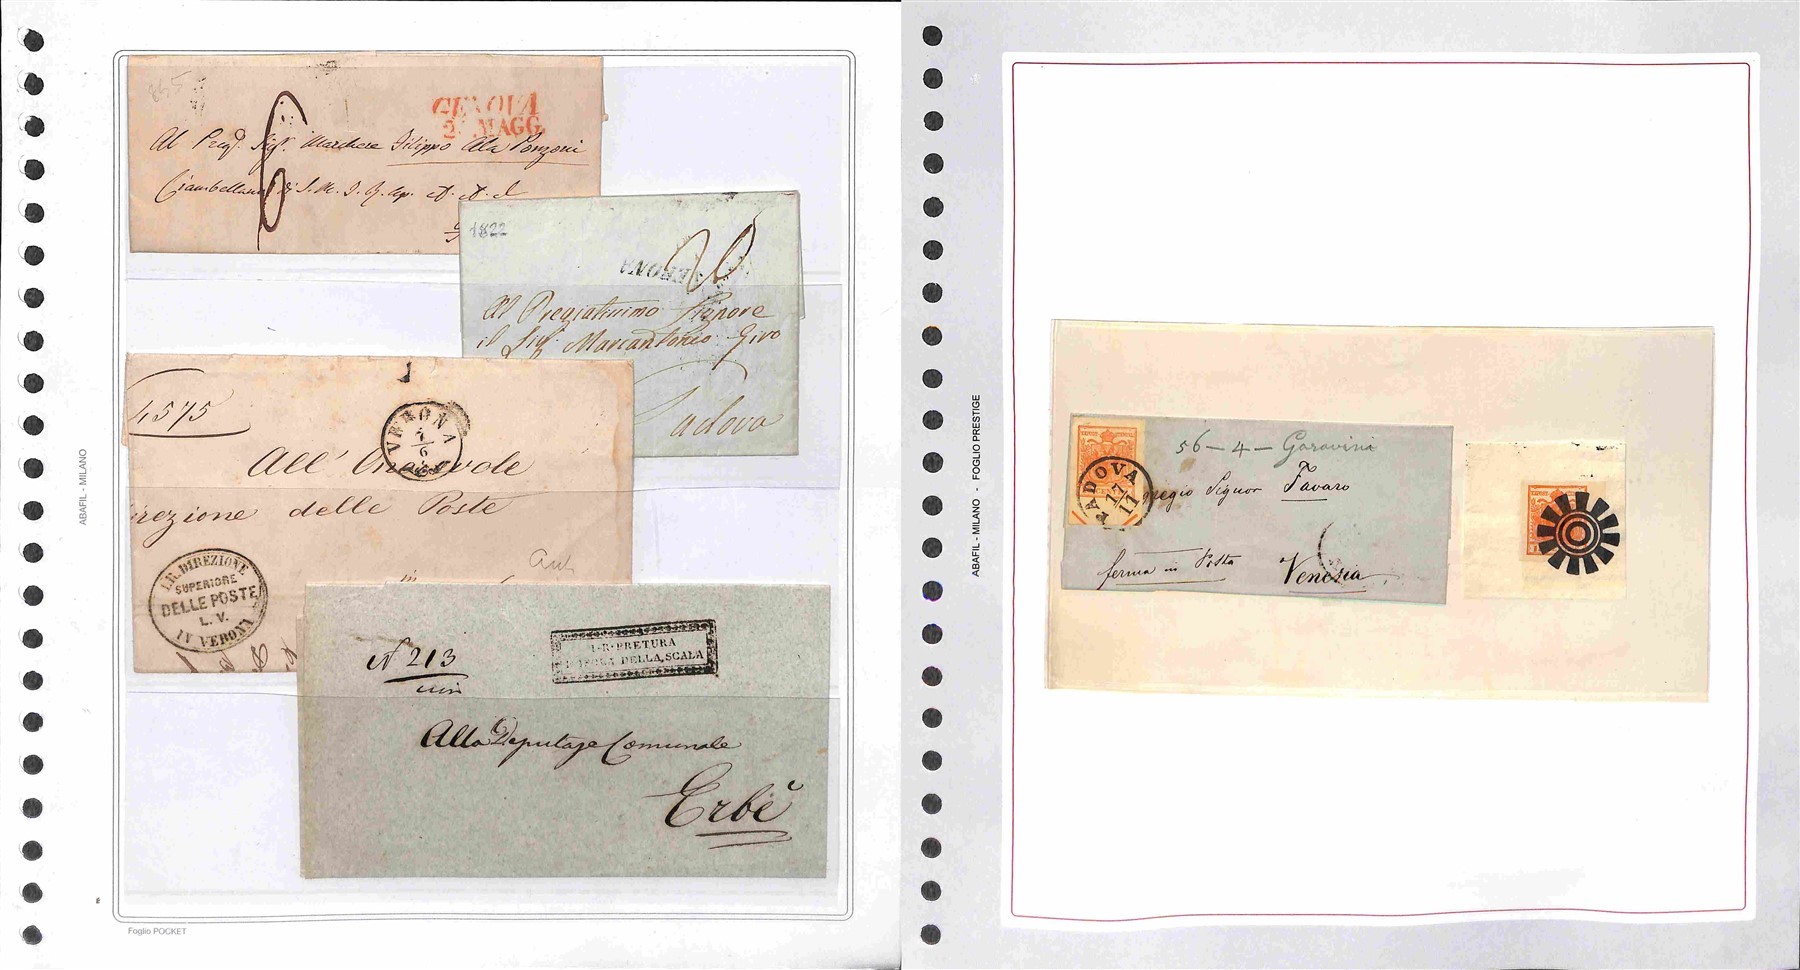 GENOVA
2 MAGG.
Al Preg. Sig. Marchese Filippo Ala Ponzoni
Ciambellano di S. M. I. R. Ap. &. &. &
1822
20
VERONA
Al Pregiatissimo Signore
il Sig. Marcantonio Giro
Padova
4575
VERONA
7
6
All' Onorevole
rezione delle Poste
in
I. R. DIREZIONE
SUPERIORE
DELLE POSTE
L. V.
IN VERONA
N 213
I. R. PRETURA
ISOLA DELLA SCALA
Alla Deputaze Comunale
Erbè
ABAFIL - MILANO
Foglio POCKET
56 - 4 - Garavini
PADOVA
17
11
regio Signor Favaro
ferma in Posta
Venezia
ABAFIL - MILANO - FOGLIO PRESTIGE